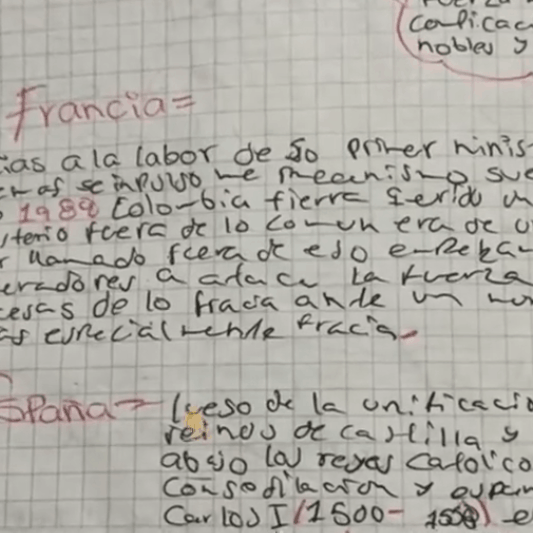 conficac
nobles y
Francia=
ias a la labor de so primer minis
se inpuso me mecanismo sue
1989 Colombia fierra serido un
terio fuera de lo comun era de u
llamado fuera de eso
eradores a ataca la fuerza
cesas de lo fracia ande un
as especialmente fracia.
spaña= lueso de la unificacio
reinos de castilla y
abajo los reyes catolico
consodilacion y
Carlos I (1500- 1558) e